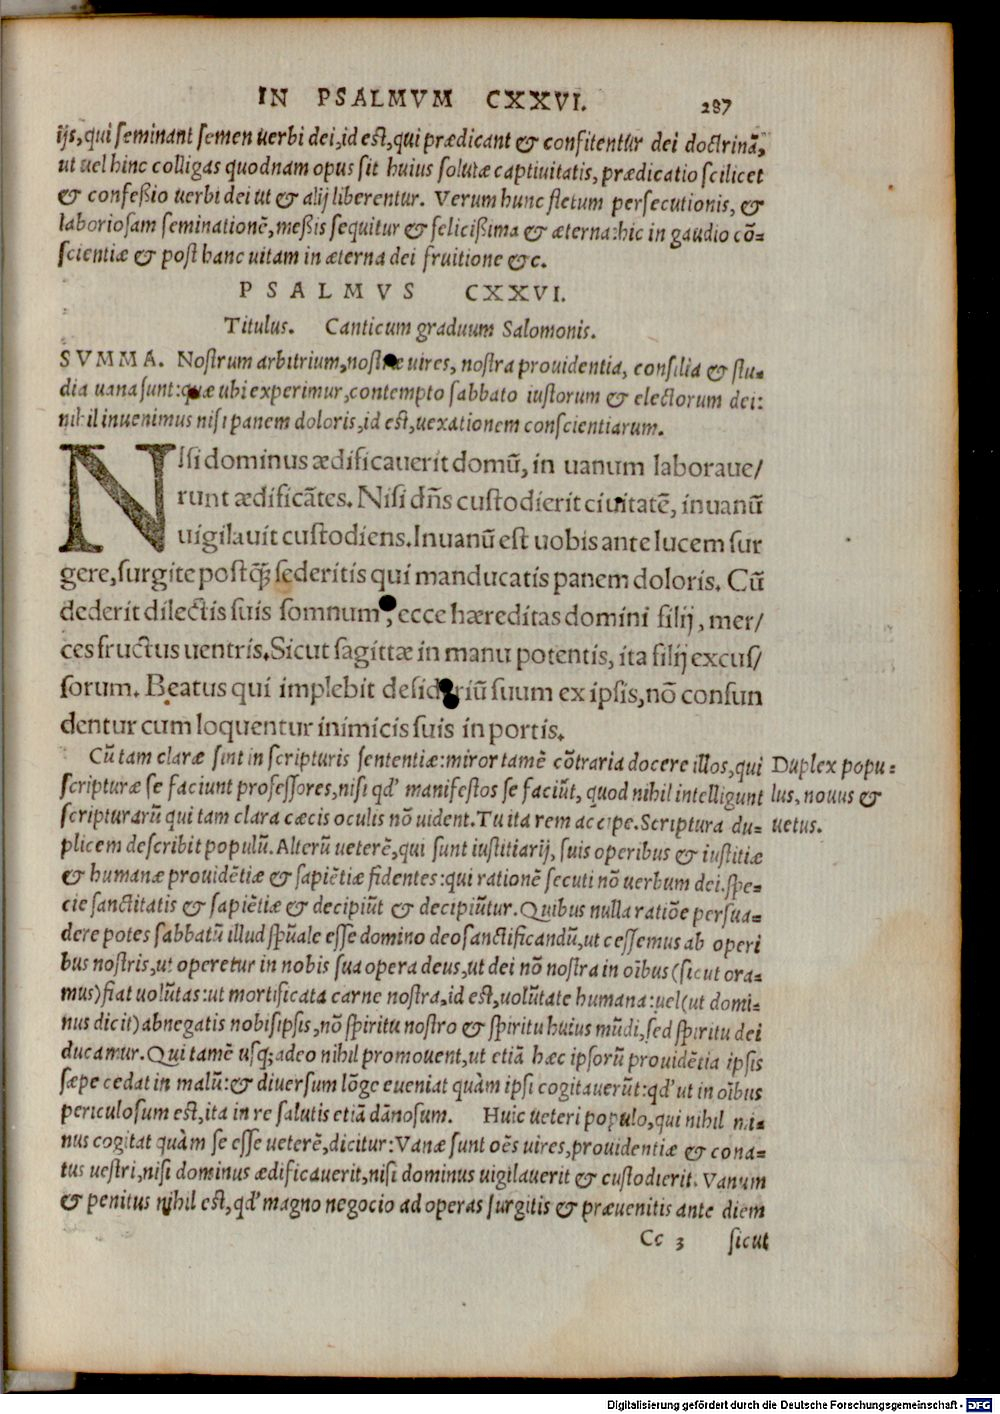 IN PSALMVM CXXVI. 287
ijs, qui seminant semen uerbi dei, id est, qui prædicant & confitentur dei doctrinā,
ut uel hinc colligas quodnam opus sit huius solutæ captiuitatis, prædicatio scilicet
& confeßio uerbi dei ut & alij liberentur. Verum hunc fletum persecutionis, &
laboriosam seminationē, meßis sequitur & felicißima & æterna: hic in gaudio cō=
scientiæ & post hanc uitam in æterna dei fruitione &c.
PSALMVS CXXVI.
Titulus. Canticum graduum Salomonis.
SVMMA. Nostrum arbitrium, nostræ uires, nostra prouidentia, consilia & stu=
dia uana sunt: quæ ubi experimur, contempto sabbato iustorum & electorum dei:
nihil inuenimus nisi panem doloris, id est, uexationem conscientiarum.
NIsi dominus ædificauerit domū, in uanum laboraue/
runt ædificātes. Nisi dñs custodierit ciuitatē, in uanū
uigilauit custodiens. In uanū est uobis ante lucem sur
gere, surgite postq̃ sederitis qui manducatis panem doloris. Cū
dederit dilectis suis somnum, ecce hæreditas domini filij, mer/
ces fructus uentris. Sicut sagittæ in manu potentis, ita filij excus/
sorum. Beatus qui implebit desideriū suum ex ipsis, nō confun
dentur cum loquentur inimicis suis in portis.
Cū tam claræ sint in scripturis sententiæ: miror tamē cōtraria docere illos, qui
scripturæ se faciunt professores, nisi qd' manifestos se faciūt, quod nihil intelligunt
scripturarū qui tam clara cæcis oculis nō uident. Tu ita rem accipe. Scriptura du=
plicem describit populū. Alterū ueterē, qui sunt iustitiarij, suis operibus & iustitiæ
& humanæ prouidētiæ & sapiētiæ fidentes: qui rationē secuti nō uerbum dei. spe=
cie sanctitatis & sapiētiæ & decipiūt & decipiūtur. Quibus nulla ratiōe persua=
dere potes sabbatū illud spūale esse domino deo sanctificandū, ut cessemus ab operi
bus nostris, ut operetur in nobis sua opera deus, ut dei nō nostra in oībus (sicut ora=
mus) fiat uolūtas: ut mortificata carne nostra, id est, uolūtate humana: uel (ut domi=
nus dicit) abnegatis nobisipsis, nō spiritu nostro & spiritu huius mūdi, sed spiritu dei
ducamur. Qui tamē usq; adeo nihil promouent, ut etiā hæc ipsorū prouidētia ipsis
sæpe cedat in malū: & diuersum lōge eueniat quàm ipsi cogitauerūt: qd' ut in oībus
periculosum est, ita in re salutis etiā dānosum. Huic ueteri populo, qui nihil mi=
nus cogitat quàm se esse ueterē, dicitur: Vanæ sunt oēs uires, prouidentiæ & cona=
tus uestri, nisi dominus ædificauerit, nisi dominus uigilauerit & custodierit. Vanum
& penitus nihil est, qd' magno negocio ad operas surgitis & præuenitis ante diem
Cc 3 sicut
Duplex popu=
lus, nouus &
uetus.
Digitalisierung gefördert durch die Deutsche Forschungsgemeinschaft - DFG